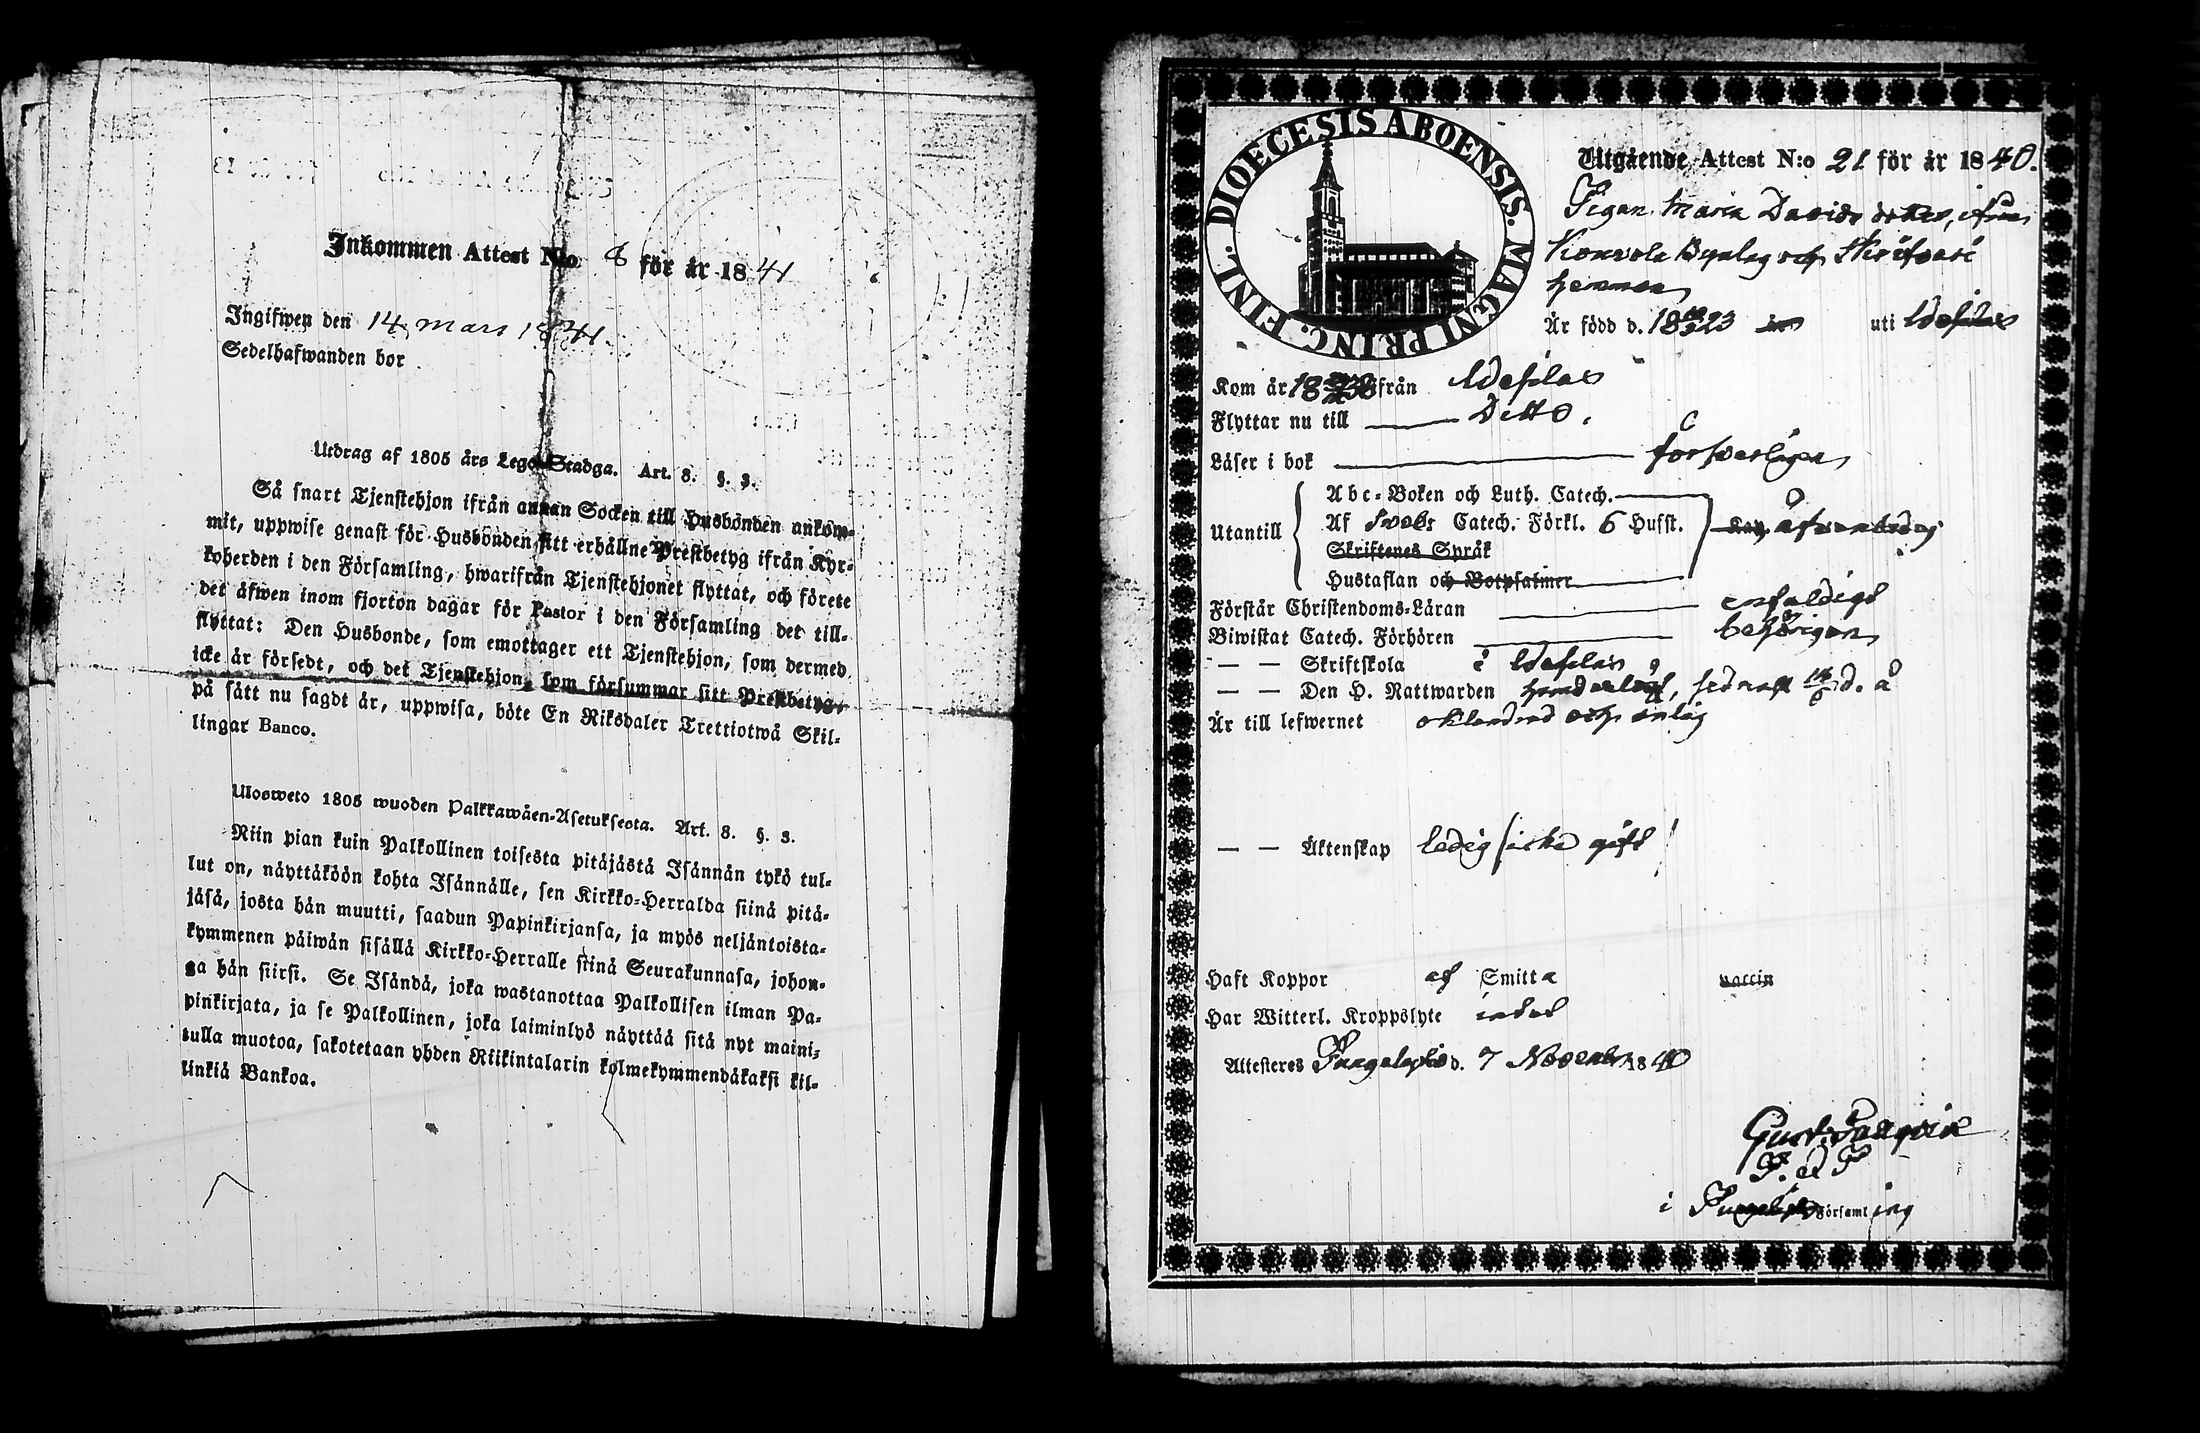 Inkommen Attest N:o 8 för år 1841
Ingifwen den 14 mars 1841.
Sedelhafwanden bor
Utdrag af 1805 års Lego-Stadga. Art. 8. §. 3.
Så snart Tjenstehjon ifrån annan Socken till Husbonden ankom-
mit, uppwise genast för Husbonden sitt erhållne Prestbetyg ifrån Kyr-
koherden i den Församling, hwarifrån Tjenstehjonet flyttat, och förete
det äfwen inom fjorton dagar för Pastor i den Församling det till-
flyttat: Den Husbonde, som emottager ett Tjenstehjon, som dermed
icke är försedt, och det Tjenstehjon, som försummar sitt Prestbetyg,
på sätt nu sagdt är, uppwisa, böte En Riksdaler Trettiotwå Skil-
lingar Banco.
Ulosweto 1805 wuoden Palkkawäen-Asetuksesta. Art. 8. §. 3.
Niin pian kuin Palkollinen toisesta pitäjästä Isännän tykö tul-
lut on, näyttäköön kohta Isännälle, sen Kirkko-Herralda siinä pitä-
jäsä, josta hän muutti, saadun Papinkirjansa, ja myös neljäntoista-
kymmenen päiwän sisällä Kirkko-Herralle siinä Seurakunnasa, johon-
ga hän siirsi. Se Isändä, joka wastanottaa Palkollisen ilman Pa-
pinkirjata, ja se Palkollinen, joka laiminlyö näyttää sitä nyt maini-
tulla muotoa, sakotetaan yhden Riikintalarin kolmekymmendäkaksi kil-
linkiä Bankoa.
DIOECESIS ABOENSIS. MAGNI PRINC. FINL.
Utgående Attest N:o 21 för år 1840.
Pigan Maria Davids dotter, ifrån
Byalag och
hemman
Är född d. 1823 uti
Kom år 18 ifrån
Flyttar nu till Ditto.
Läser i bok försvarligen
Abc-Boken och Luth. Catech.
Utantill Af Sveb: Catech. Förkl. 6 Hufst.
Skriftenes Språk
Hustaflan och Botpsalmer
Förstår Christendoms-Läran enfaldigt
Biwistat Catech. Förhören behörigen
— — Skriftskola i
— — Den H. Nattwarden sednast d. å
Är till lefwernet oklandrad och
— — Äktenskap ledig (icke gift)
Haft Koppor af Smitta vaccin
Har Witterl. Kroppslyte intet
Attesteres d. 7 November 1840
Gust.
P. ad P
i Församling